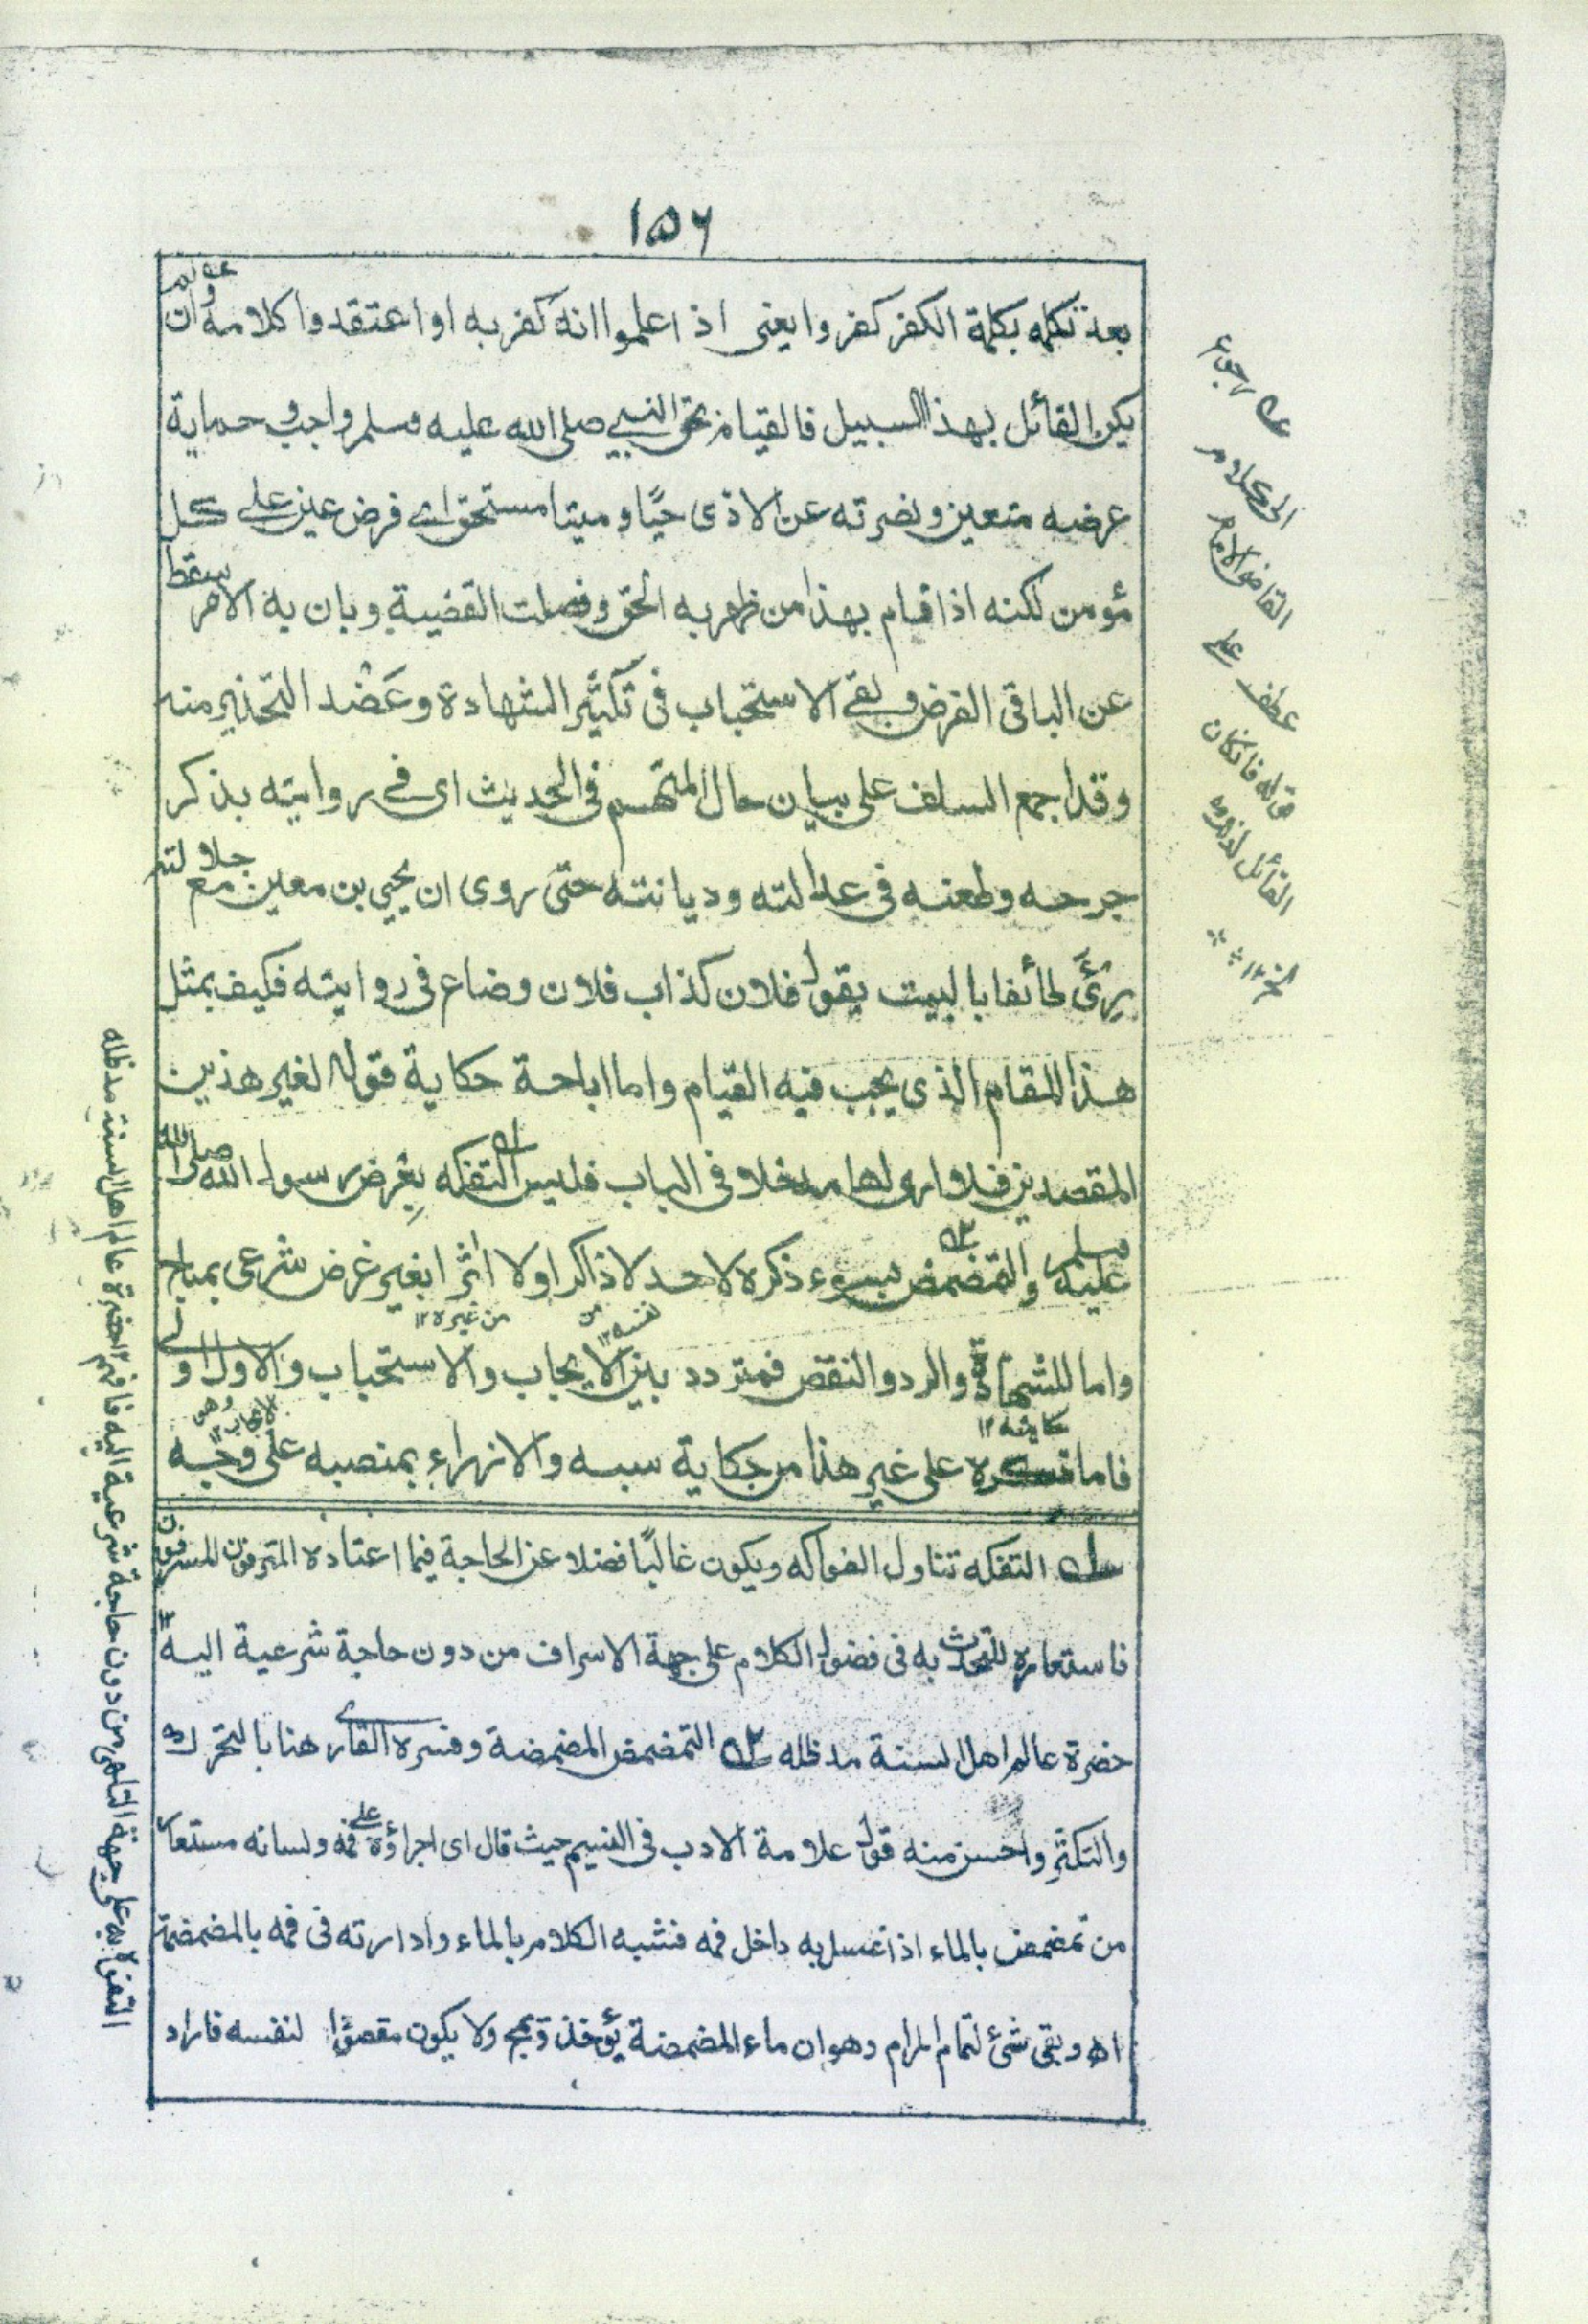 ١٥٦
بعد تكلمه بكلمة الكفر كفروا يعنى اذا علموا انه كفر به او اعتقدوا كلامه وان لم
يكن القائل بهذا السبيل فالقيام بحق النبي صلى الله عليه وسلم واجب وحماية
عرضه متعين ونصرته عن الاذى حيًا وميتا مستحق اى فرض عين على كل
مؤمن لكنه اذا قام بهذا من ظهر به الحق وفصلت القضية وبان به الامر سقط
عن الباقى الفرض وبقى الاستحباب فى تكثير الشهادة وعضد التحذير منه
وقد اجمع السلف على بيان حال المتهم فى الحديث اى فى روايته بذكر
جرحه وطعنه فى عدالته وديانته حتى روى ان يحيى بن معين مع جلالته
رئى طائفا بالبيت يقول فلان كذاب فلان وضاع فى روايته فكيف بمثل
هذا المقام الذى يجب فيه القيام واما اباحة حكاية قوله لغير هذين
المقصدين فلا ارى لها مدخلا فى الباب فليس التفكه بعرض رسول الله صلى الله
عليه وسلم والتمضمض بسوء ذكره لاحد لا ذاكرا ولا اثرا لغير غرض شرعى بمباح
من نفسه ١٢
من غيره ١٢
واما للشهادة والرد والنقض فمتردد بين الايجاب والاستحباب والاول اولى
حكايته ١٢
الايجاب ١٢
فاما ذكره على غير هذا من حكاية سبه والازراء بمنصبه على وجه
ه١ التفكه تناول الفواكه ويكون غالبًا فضلا عن الحاجة فيما اعتاده المترفون المسرفون
فاستعاره للتحدث به فى فضول الكلام على جهة الاسراف من دون حاجة شرعية اليه ١٢
حضرة عالم اهل السنة مد ظله ه٢ التمضمض المضمضة وفسره القارى هنا بالتحرك
والتكثر واحسن منه قول علامة الادب فى النسيم حيث قال اى اجراؤه على فمه ولسانه مستعار
من تمضمض بالماء اذا غسل به داخل فمه فشبه الكلام بالماء وادارته فى فمه بالمضمضمة
اه وبقى شئ لتمام المرام وهو ان ماء المضمضة يؤخذ ويمج ولا يكون مقصودًا لنفسه فاراد
عه رجوع
الى كلام
القاضى الامام
عطف على
قوله فان كان
القائل لذلك
الخ ١٢
التفوه به على جهة التلهى من دون حاجة شرعية اليه فافهم ١٢ حضرة عالم اهل السنة مد ظله